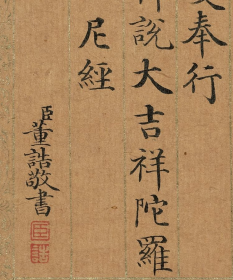 奉行
說大吉祥陀羅
尼經
臣董誥敬書
臣誥